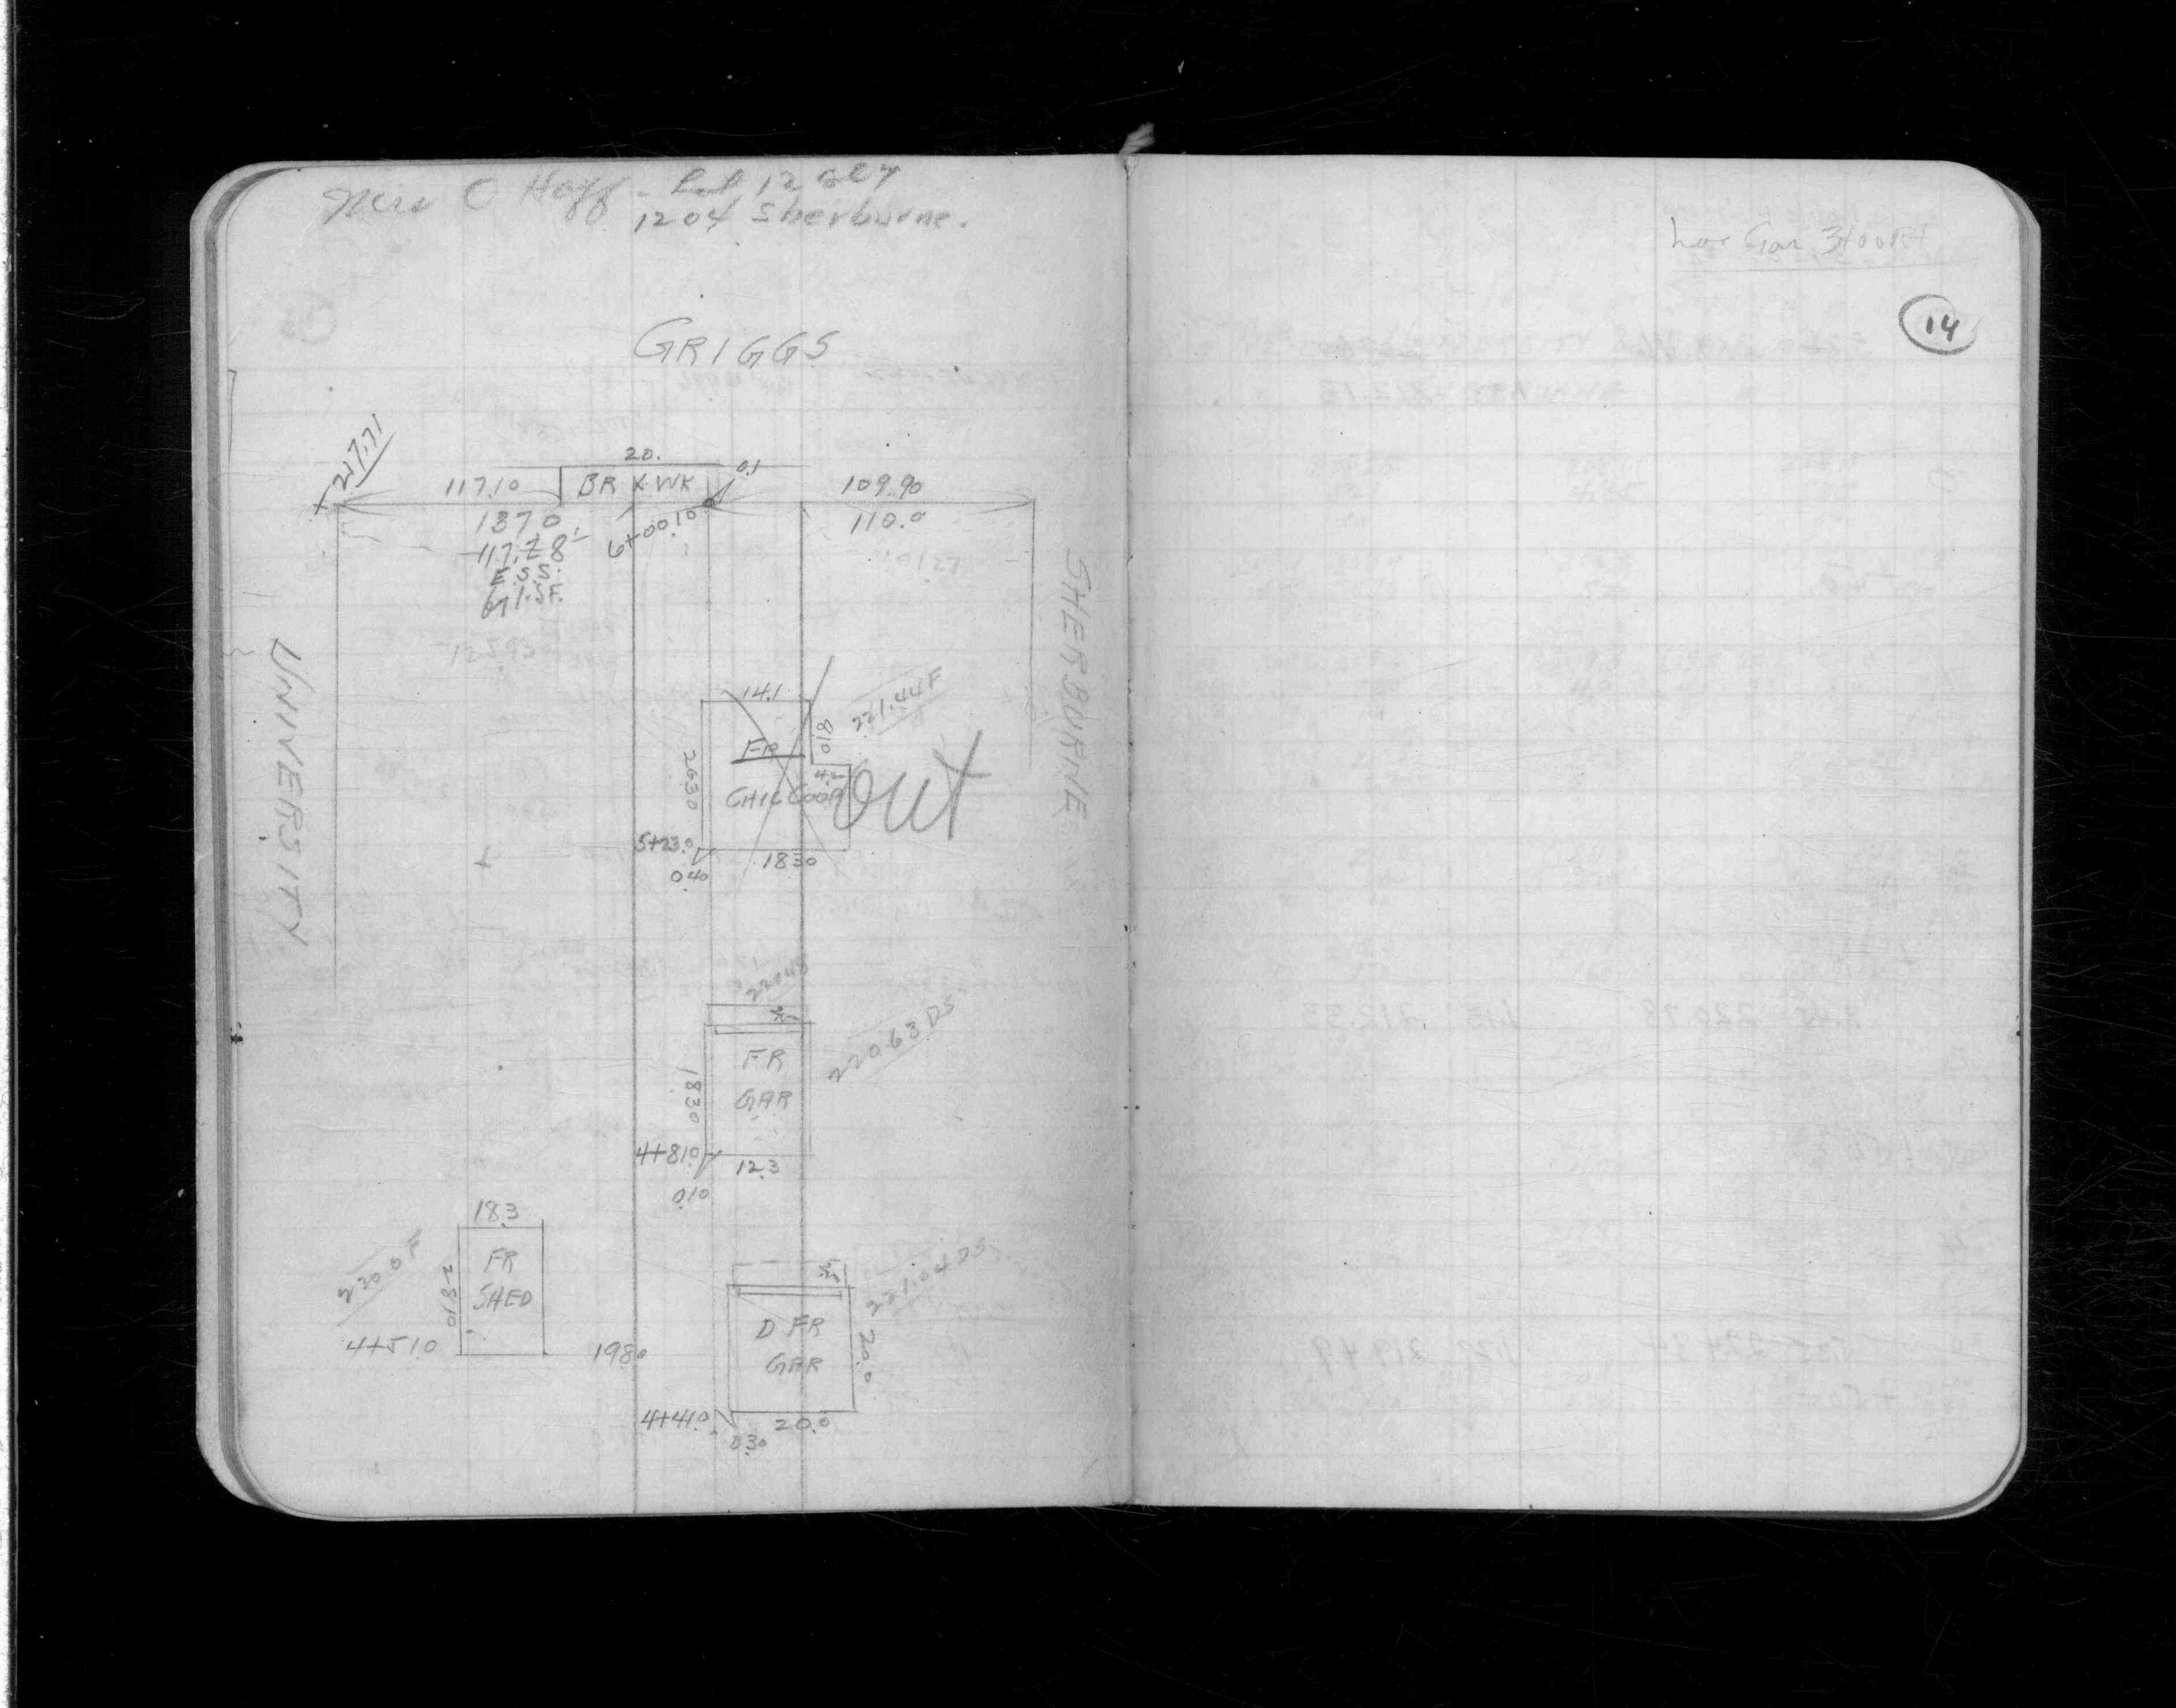 Mrs O Hoff - Lot 12 Blk 4
1204 Sherburne.
GRIGGS
217.71
20.
0.1
117.10
BR X-WK
109.90
137.0
6+00.10
110.0
E.S.S.
UNIVERSITY
SHERBURNE
14.1
221.44 F
8.10
FR
4.2
26.30
CHIC COOP
out
5+23.0
18.30
0.40
220.63 DS
FR
GAR
18.30
4+81.0
12.3
0.10
18.3
FR
SHED
220.0 F
28.10
4+51.0
19.80
221.04 DS
D FR
GAR
20.0
4+41.0
20.0
0.30
Loc Gar 3+00 Rt
14